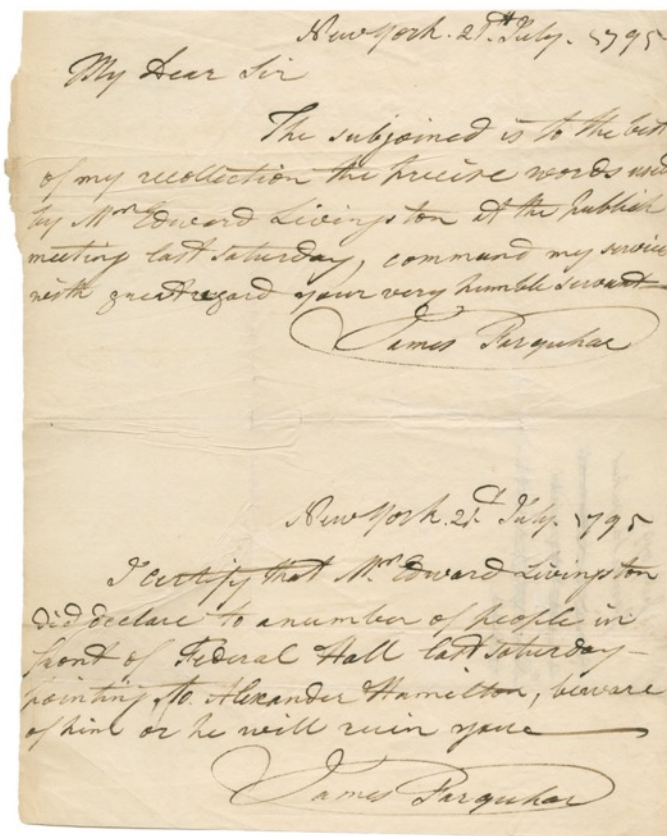 New York. 21st July. 1795
My Dear Sir
The subjoined is to the best
of my recollection the precise words used
by Mr. Edward Livingston at the publick
meeting last saturday, command my service
with great regard your very humble servant
James Farquhar
New York. 21st July. 1795
I certify that Mr. Edward Livingston
did declare to a number of people in
front of Federal Hall last saturday—
pointing to Alexander Hamilton, beware
of him or he will ruin you
James Farquhar